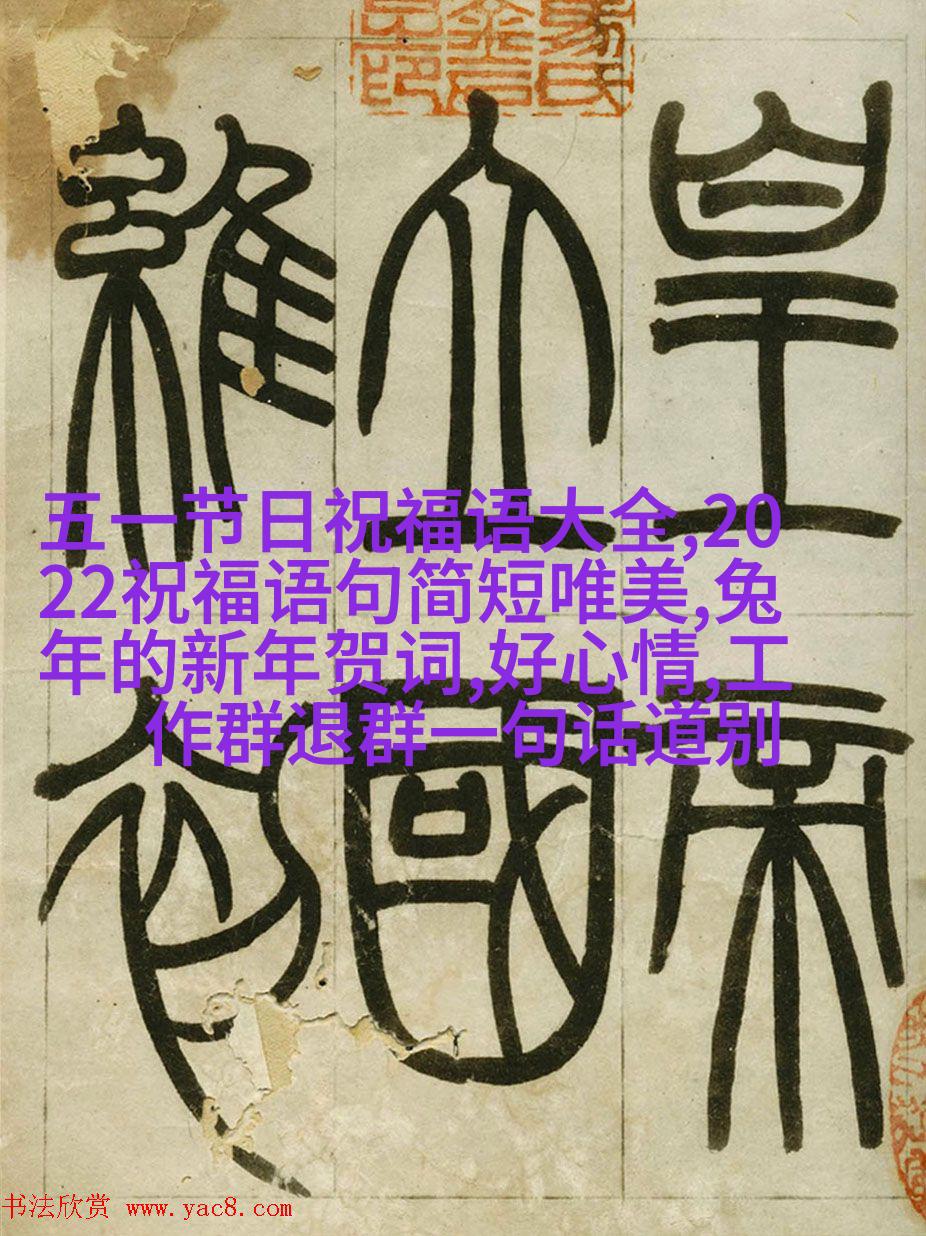 皇帝
立國
維初
五一节日祝福语大全,20
22祝福语句简短唯美,兔
年的新年贺词,好心情,工
作群退群一句话道别
书法欣赏 www.yac8.com